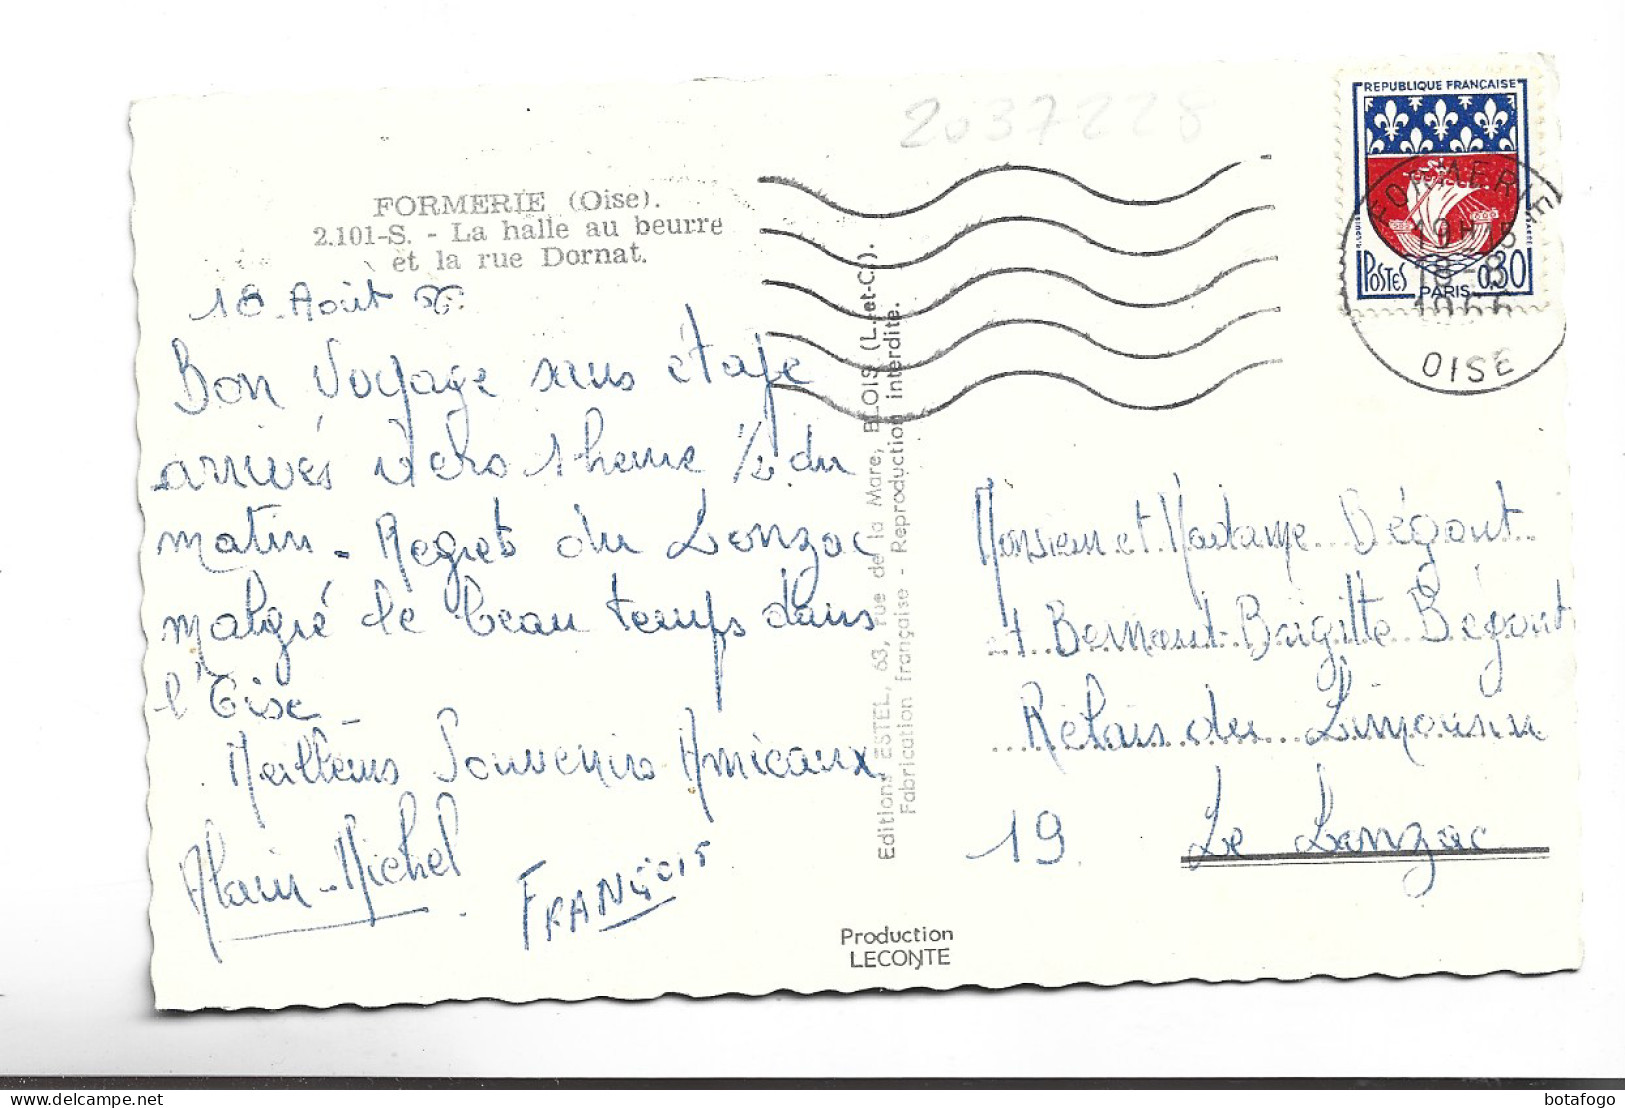 2037228
REPUBLIQUE FRANÇAISE
POSTES
0,30
PARIS
FORMERIE
19H15
18-8
1966
OISE
FORMERIE (Oise).
2.101-S. - La halle au beurre
et la rue Dornat.
18 Août 66
Bon Voyage sans étape
arrivés vers 1 heure 1/2 du
matin - Regret du Lonzac
malgré le beau temps dans
l'Oise -
Meilleurs Souvenirs Amicaux
Alain - Michel
FRANÇOIS
Editions ESTEL, 63, rue de la Mare, BLOIS (L.-et-C.).
Fabrication française - Reproduction interdite.
Production
LECONTE
Monsieur et Madame Bégout
et Bernard-Brigitte Bégout
Relais du Limousin
19 Le Lonzac
botafogo